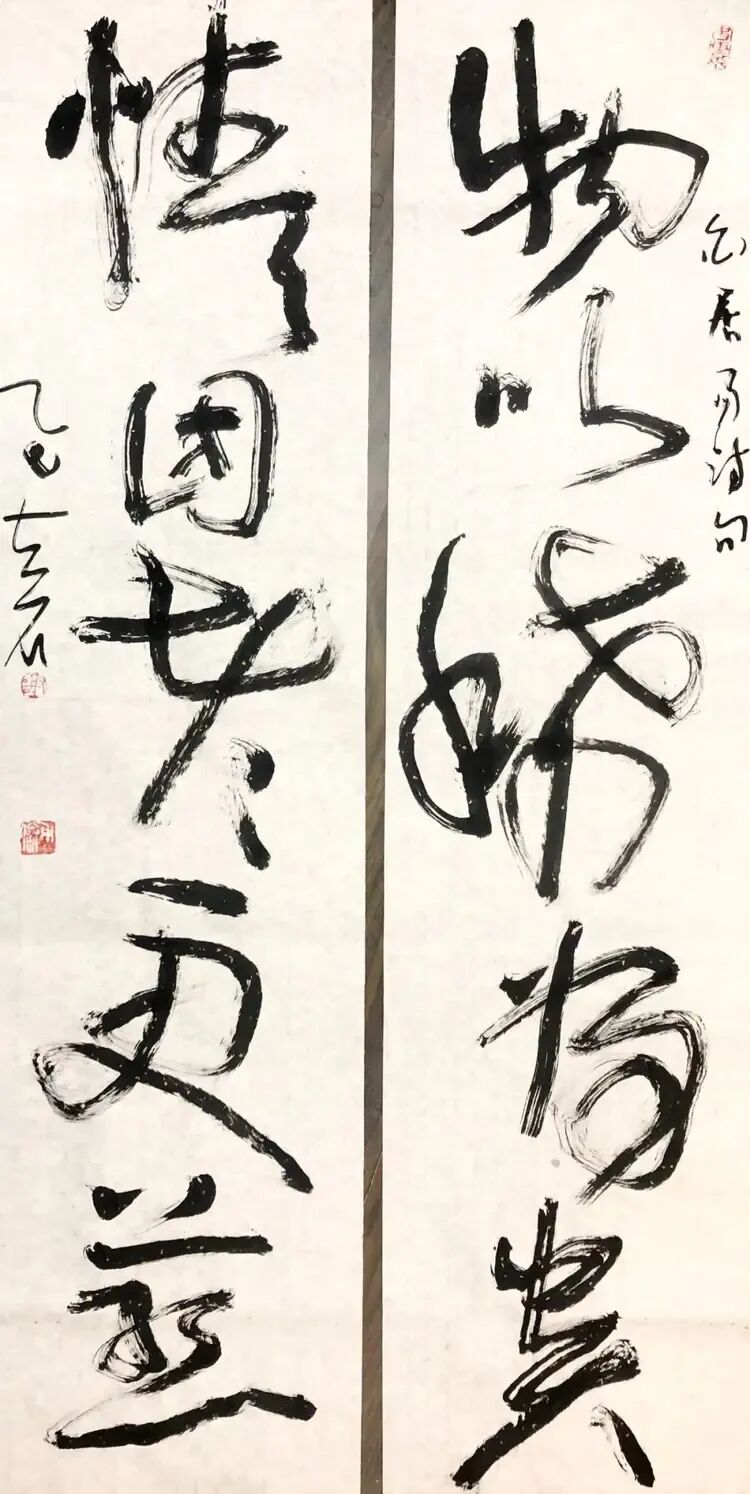 白居易诗句
物以稀为贵
情因老更慈
乙巳